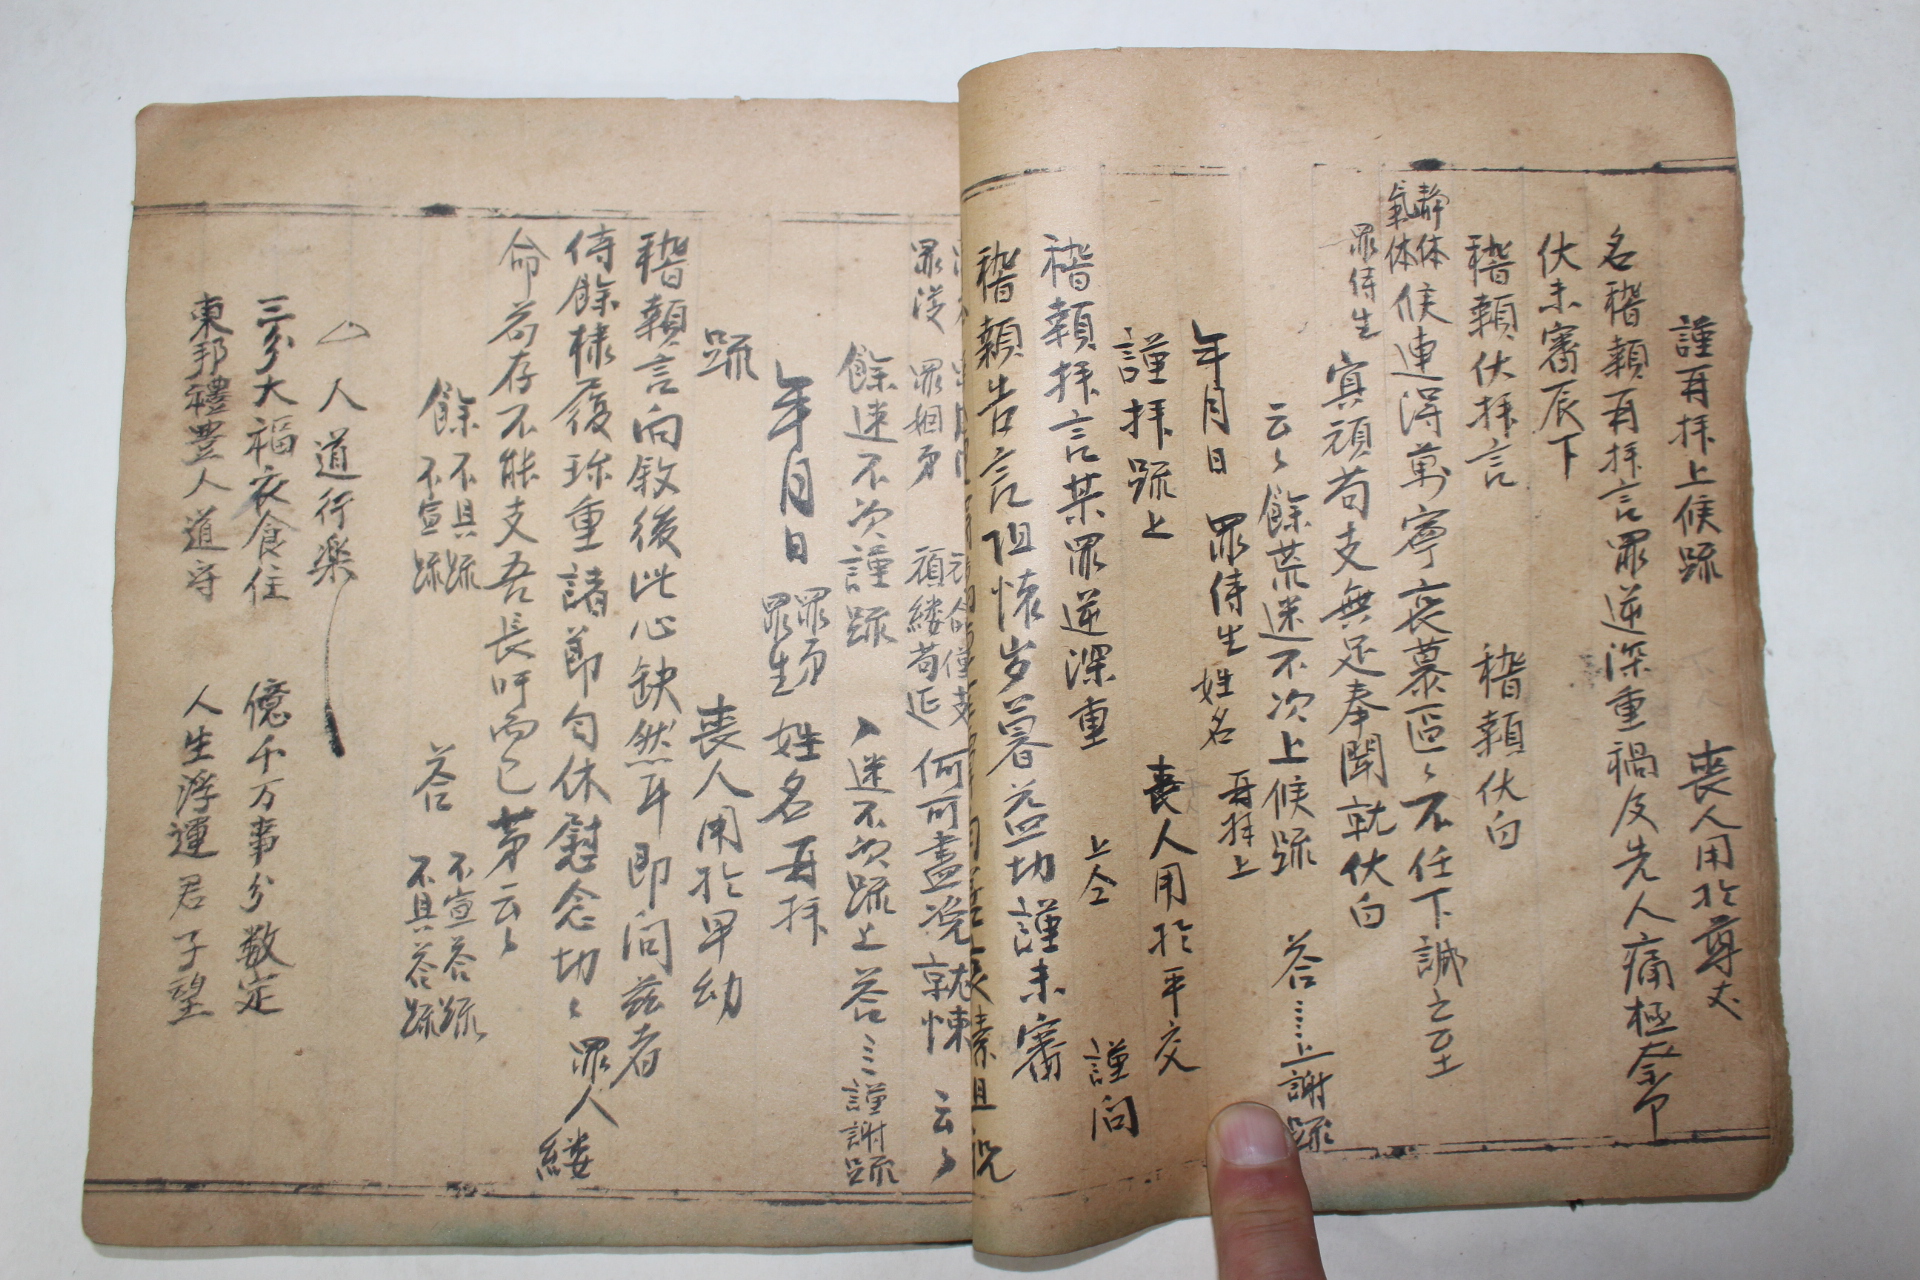 謹再拜上候疏 喪人用於尊丈
名稽顙再拜言罪逆深重禍及先人痛極奈何
伏未審辰下
稽顙伏拜言 稽顙伏白
靜体
氣体
候連得萬寧哀慕區〻不任下誠之至
罪侍生
冥頑苟支無足奉聞就伏白
云〻餘荒迷不次上候疏 答〻〻上謝疏
年月日 罪侍生 姓名 再拜上
謹拜疏上 喪人用於平交
稽顙拜言某罪逆深重 上仝 謹問
稽顙告言阻懷岁暮益切謹未審
罪侵 罪姻弟 頑縷苟延 何可盡况就悚 云〻
餘迷不次謹疏 〻迷不次疏上答〻〻謹謝疏
年月日 罪弟
罪生 姓名 再拜
疏 喪人用於卑幼
稽顙言向敘後此心缺然耳即問兹者
侍餘樣履珍重諸節勻休慰念切〻罪人縷
命苟存不能支吾長吁而已第云〻
餘 不具疏
不宣疏 答 不宣答疏
不具答疏
△ 人道行樂
三分大福衣食住 億千万事分数定
東邦禮豊人道守 人生浮運君子望